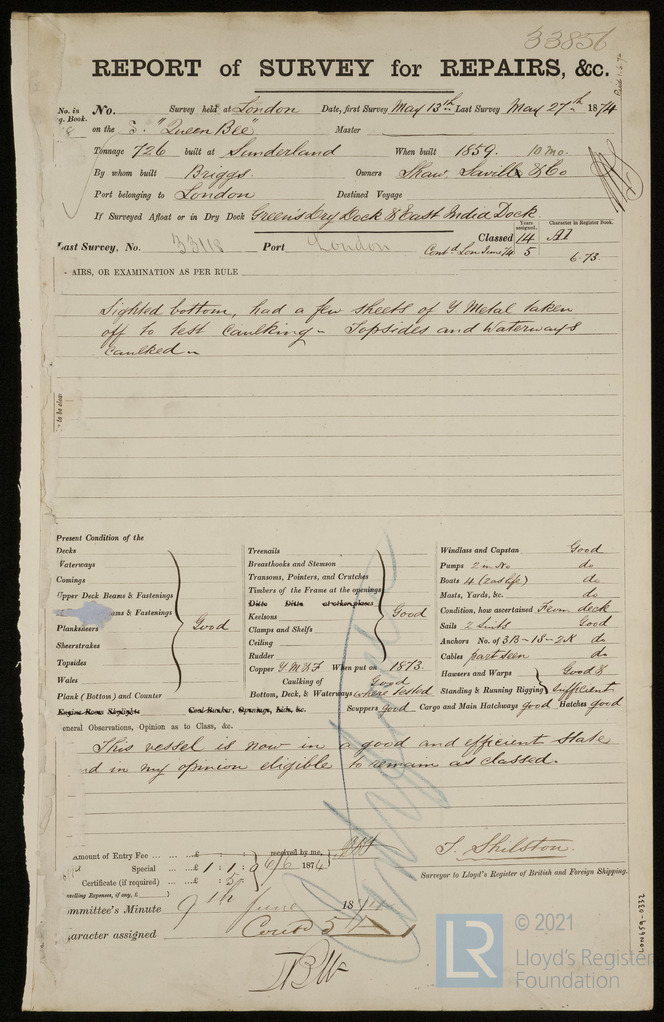 33856
REPORT of SURVEY for REPAIRS, &c.
No. in
g. Book.
No. Survey held at London Date, first Survey May 13th Last Survey May 27th 1874
on the "Queen Bee" Master
Tonnage 726 built at Sunderland When built 1859. 10 Mo.
By whom built Briggs Owners Shaw Savill & Co
Port belonging to London Destined Voyage
If Surveyed Afloat or in Dry Dock Green's Dry Dock & East India Dock.
Last Survey, No. 33118 Port London Classed Years assigned. 14 Character in Register Book. A1
Contd 5 6.73.
AIRS, OR EXAMINATION AS PER RULE
Sighted bottom, had a few sheets of Y Metal taken
off to test caulking - Topsides and Waterways
caulked -
Present Condition of the
Decks
Waterways
Comings
Upper Deck Beams & Fastenings
ams & Fastenings
Planksheers
Sheerstrakes
Topsides
Wales
Good
Plank (Bottom) and Counter
Engine Room Skylights Coal Bunker, Openings, Lids, &c.
Treenails
Breasthooks and Stemson
Transoms, Pointers, and Crutches
Timbers of the Frame at the openings
Ditto Ditto at other places
Keelsons
Clamps and Shelfs
Ceiling
Rudder
Good
Copper Y.M & F When put on 1873.
Caulking of Good
Bottom, Deck, & Waterways where tested
Windlass and Capstan Good
Pumps 2 in No do
Boats 4 (2 as life) do
Masts, Yards, &c. do
Condition, how ascertained From deck
Sails 2 Suits Good
Anchors No. of 3B-1S-2K do
Cables part seen do
Hawsers and Warps
Standing & Running Rigging
Good & sufficient
Scuppers Good Cargo and Main Hatchways good Hatches good
eneral Observations, Opinion as to Class, &c.
This vessel is now in a good and efficient state
d in my opinion eligible to remain as classed.
Amount of Entry Fee £ : : received by me,
Special £ 1 : 1 : 0 6/6 1874
Certificate (if required) : 5 :
velling Expenses, if any, £
T. Shilston.
Surveyor to Lloyd's Register of British and Foreign Shipping.
ommittee's Minute 9th June 1874
aracter assigned Contd 5
LON659-0332
© 2021
LR
Lloyd's Register
Foundation